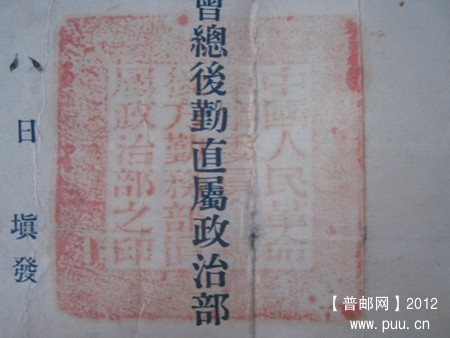 會總後勤直屬政治部
八日塡發
中國人民革命
後方勤務部直
屬政治部之印
【普邮网】2012
www.puu.cn